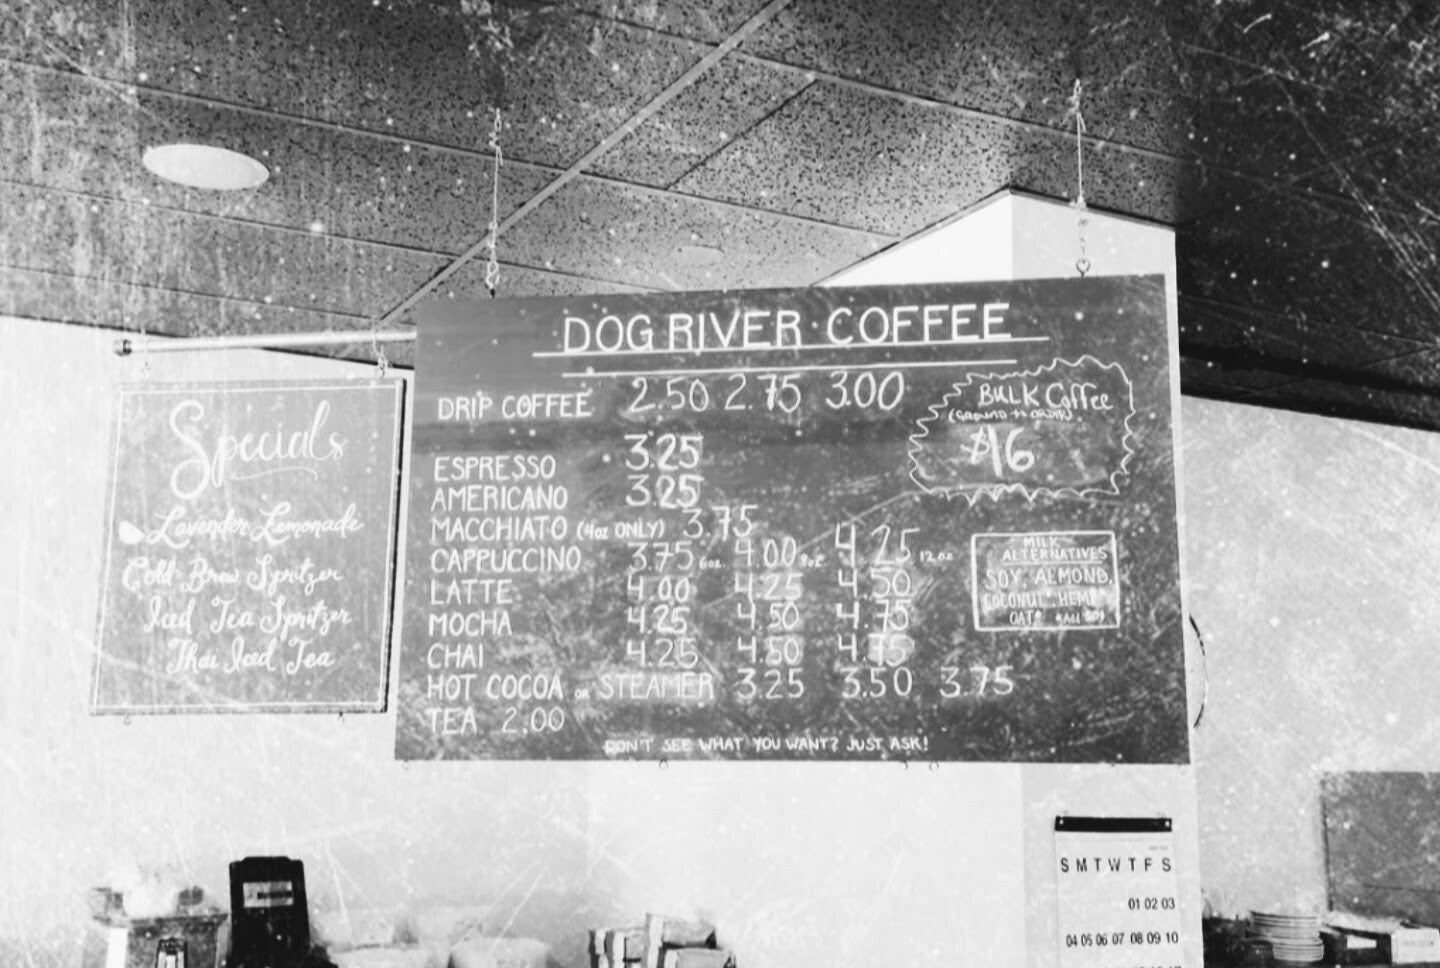 DOG RIVER COFFEE
DRIP COFFEE 2.50 2.75 3.00
ESPRESSO 3.25
AMERICANO 3.25
MACCHIATO (4oz ONLY) 3.75
CAPPUCCINO 3.75 6oz. 4.00 8oz. 4.25 12.oz
LATTE 4.00 4.25 4.50
MOCHA 4.25 4.50 4.75
CHAI 4.25 4.50 4.75
HOT COCOA OR STEAMER 3.25 3.50 3.75
TEA 2.00
DON'T SEE WHAT YOU WANT? JUST ASK!
BULK Coffee
(GROUND to ORDER)
$16
MILK
ALTERNATIVES
SOY, ALMOND,
COCONUT*, HEMP*,
OAT*
Specials
Lavender Lemonade
Cold Brew Spritzer
Iced Tea Spritzer
Thai Iced Tea
S M T W T F S
01 02 03
04 05 06 07 08 09 10